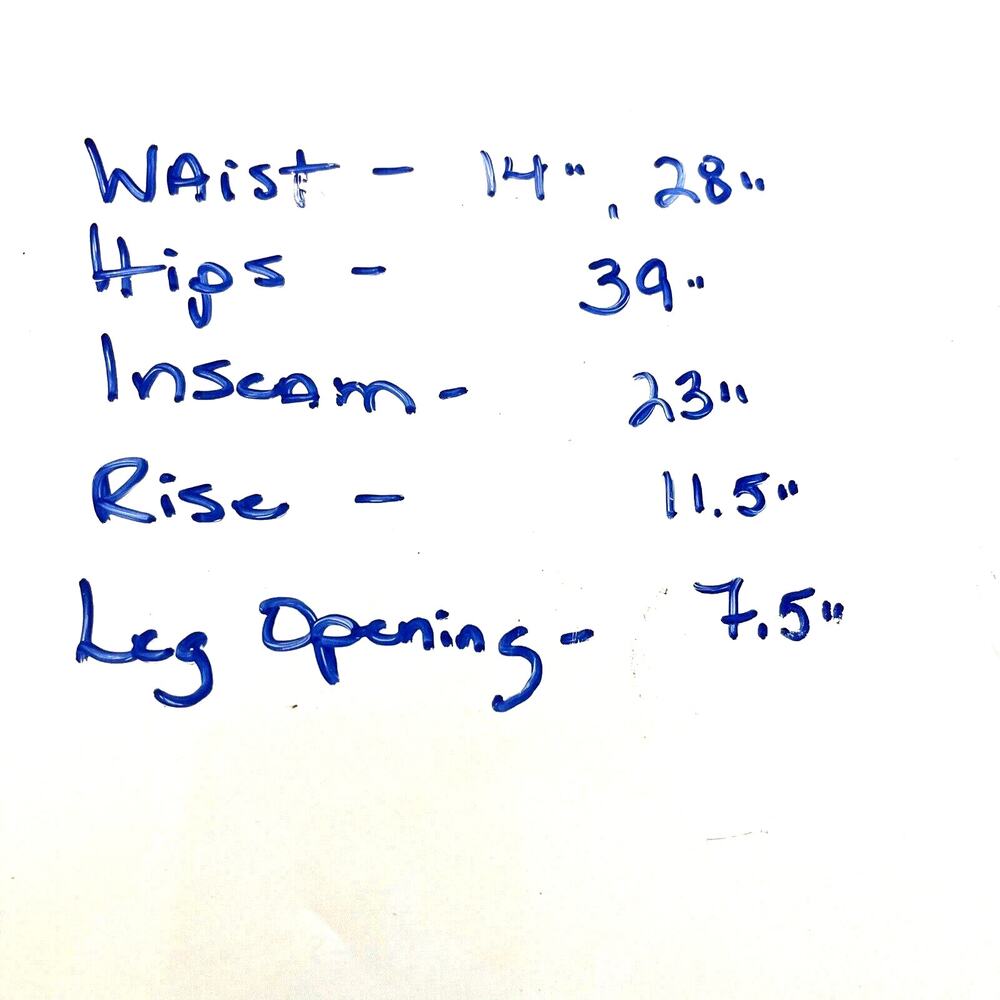 WAist - 14", 28"
Hips - 39"
Inseam - 23"
Rise - 11.5"
Leg Opening - 7.5"